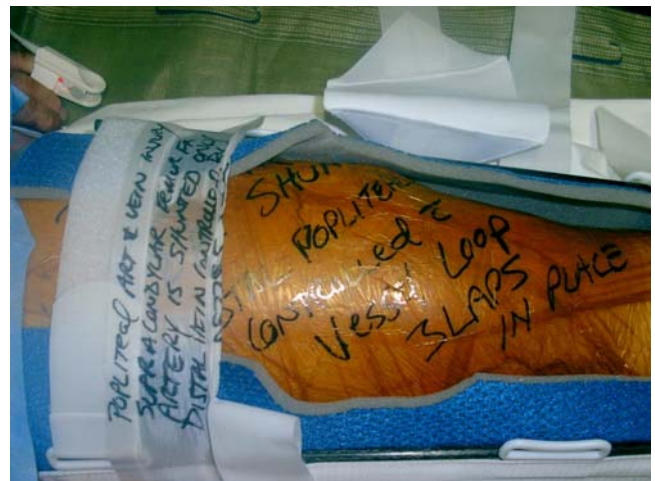 POPLITEAL ART & VEIN
SUPRACONDYLAR FEMUR FX
ARTERY IS SHUNTED ONLY
DISTAL VEIN CONTROLLED
SHUN
POPLITE
CONTROLLED c̄
VESSEL LOOP
3 LAPS
IN PLACE